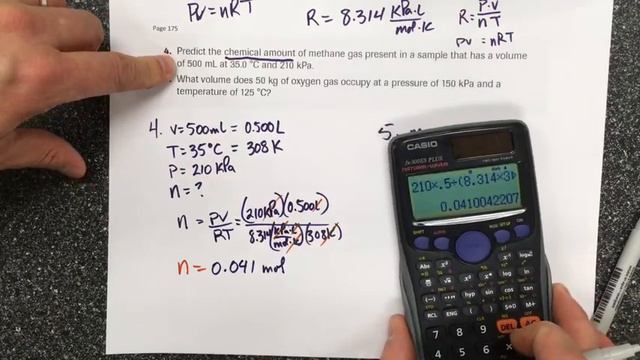 PV = nRT
R = 8.314 kPa·L
mol·K
R = P·V
n T
PV = nRT
Page 175
4. Predict the chemical amount of methane gas present in a sample that has a volume
of 500 mL at 35.0 °C and 210 kPa.
What volume does 50 kg of oxygen gas occupy at a pressure of 150 kPa and a
temperature of 125 °C?
4. V=500ml = 0.500L
T=35°C = 308 K
P=210 kPa
n = ?
n = PV = (210kPa)(0.500L)
RT 8.314 (kPa·L)(308K)
mol·K
n = 0.041 mol
5.
CASIO
fx-300ES PLUS
NATURAL-V.P.A.M.
210×.5÷(8.314×30
0.0410042207
SHIFT
ALPHA
MODE SETUP
ON
Abs
RCL
ENG
S⇔D
M+
7
8
9
DEL
AC
4
5
6